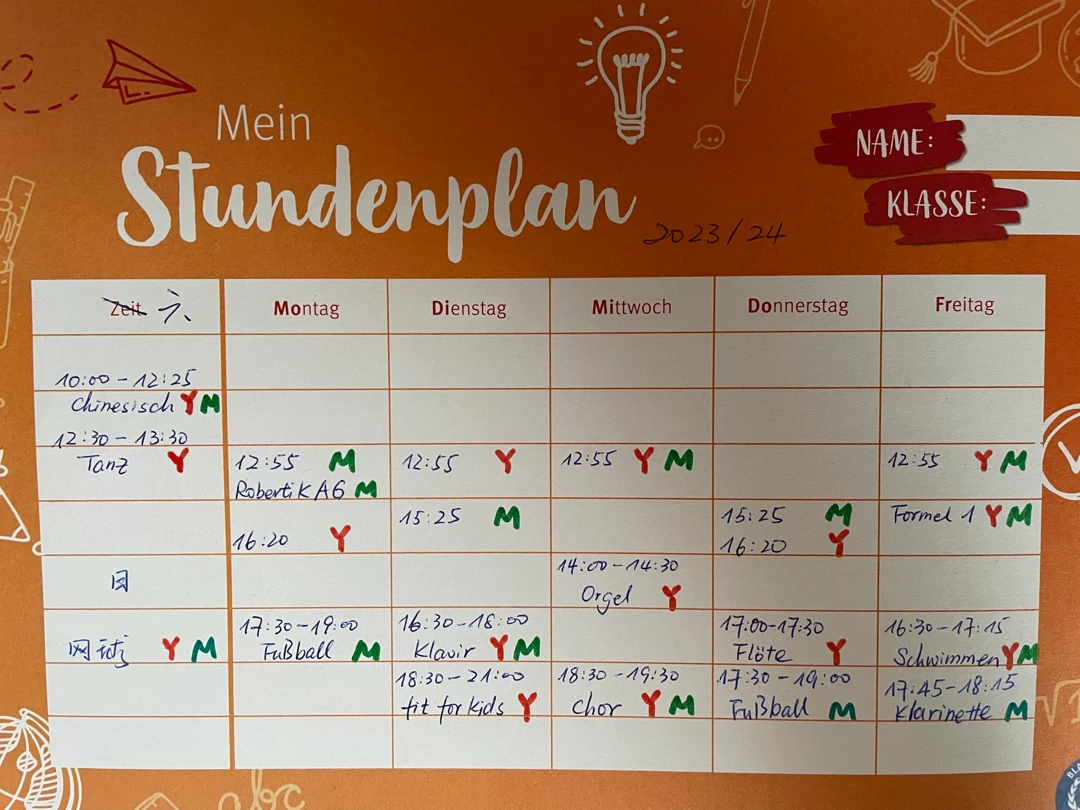 Mein
Stundenplan
2023/24
NAME:
KLASSE:
Zeit 六
Montag
Dienstag
Mittwoch
Donnerstag
Freitag
10:00 - 12:25
Chinesisch Y M
12:30 - 13:30
Tanz Y
12:55 M
12:55 Y
12:55 Y M
12:55 Y M
Robertik AG M
15:25 M
15:25 M
Formel 1 Y M
16:20 Y
16:20 Y
日
14:00 - 14:30
Orgel Y
网球 Y M
17:30 - 19:00
Fußball M
16:30 - 18:00
Klavir Y M
17:00 - 17:30
Flöte Y
16:30 - 17:15
Schwimmen Y M
18:30 - 21:00
fit for kids Y
18:30 - 19:30
Chor Y M
17:30 - 19:00
Fußball M
17:45 - 18:15
Klarinette M
abc